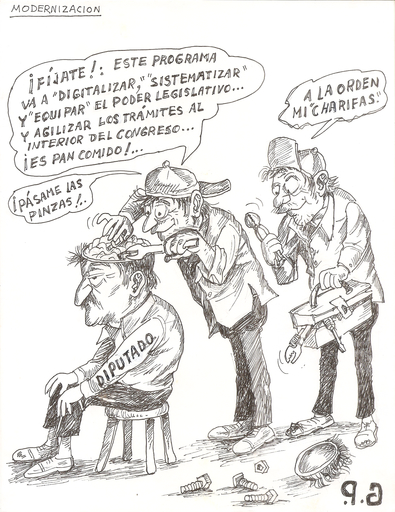 MODERNIZACION
¡FÍJATE!: ESTE PROGRAMA
VA A "DIGITALIZAR," "SISTEMATIZAR"
Y "EQUIPAR" EL PODER LEGISLATIVO...
Y AGILIZAR LOS TRÁMITES AL
INTERIOR DEL CONGRESO...
¡ES PAN COMIDO!...
¡PÁSAME LAS
PINZAS!..
A LA ORDEN
MI "CHARIFAS."
DIPUTADO
G.P.